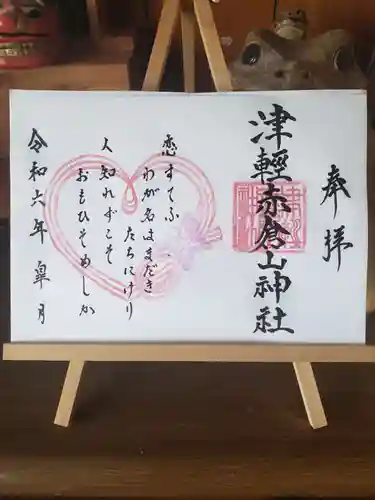 奉拝
津軽赤倉山神社
恋すてふ
わが名はまだき
たちにけり
人知れずこそ
おもひそめしか
令和六年 皐月